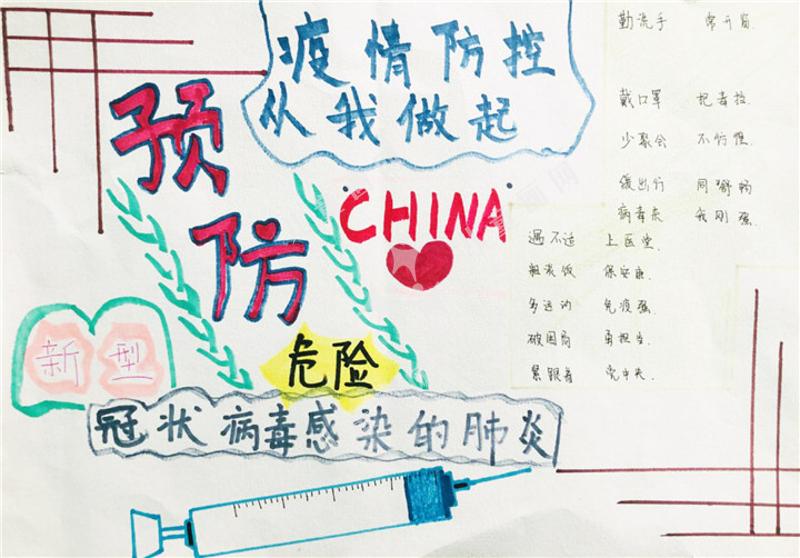 疫情防控
从我做起
预防
CHINA
新型
危险
冠状病毒感染的肺炎
勤洗手 常开窗.
戴口罩 把毒挡.
少聚会 不惆怅.
缓出行 同舒畅
病毒东 我刚强.
遇不适 上医堂.
粗淡饭 保安康.
多运动 免疫强.
破困局 勇担当.
紧跟着 党中央.